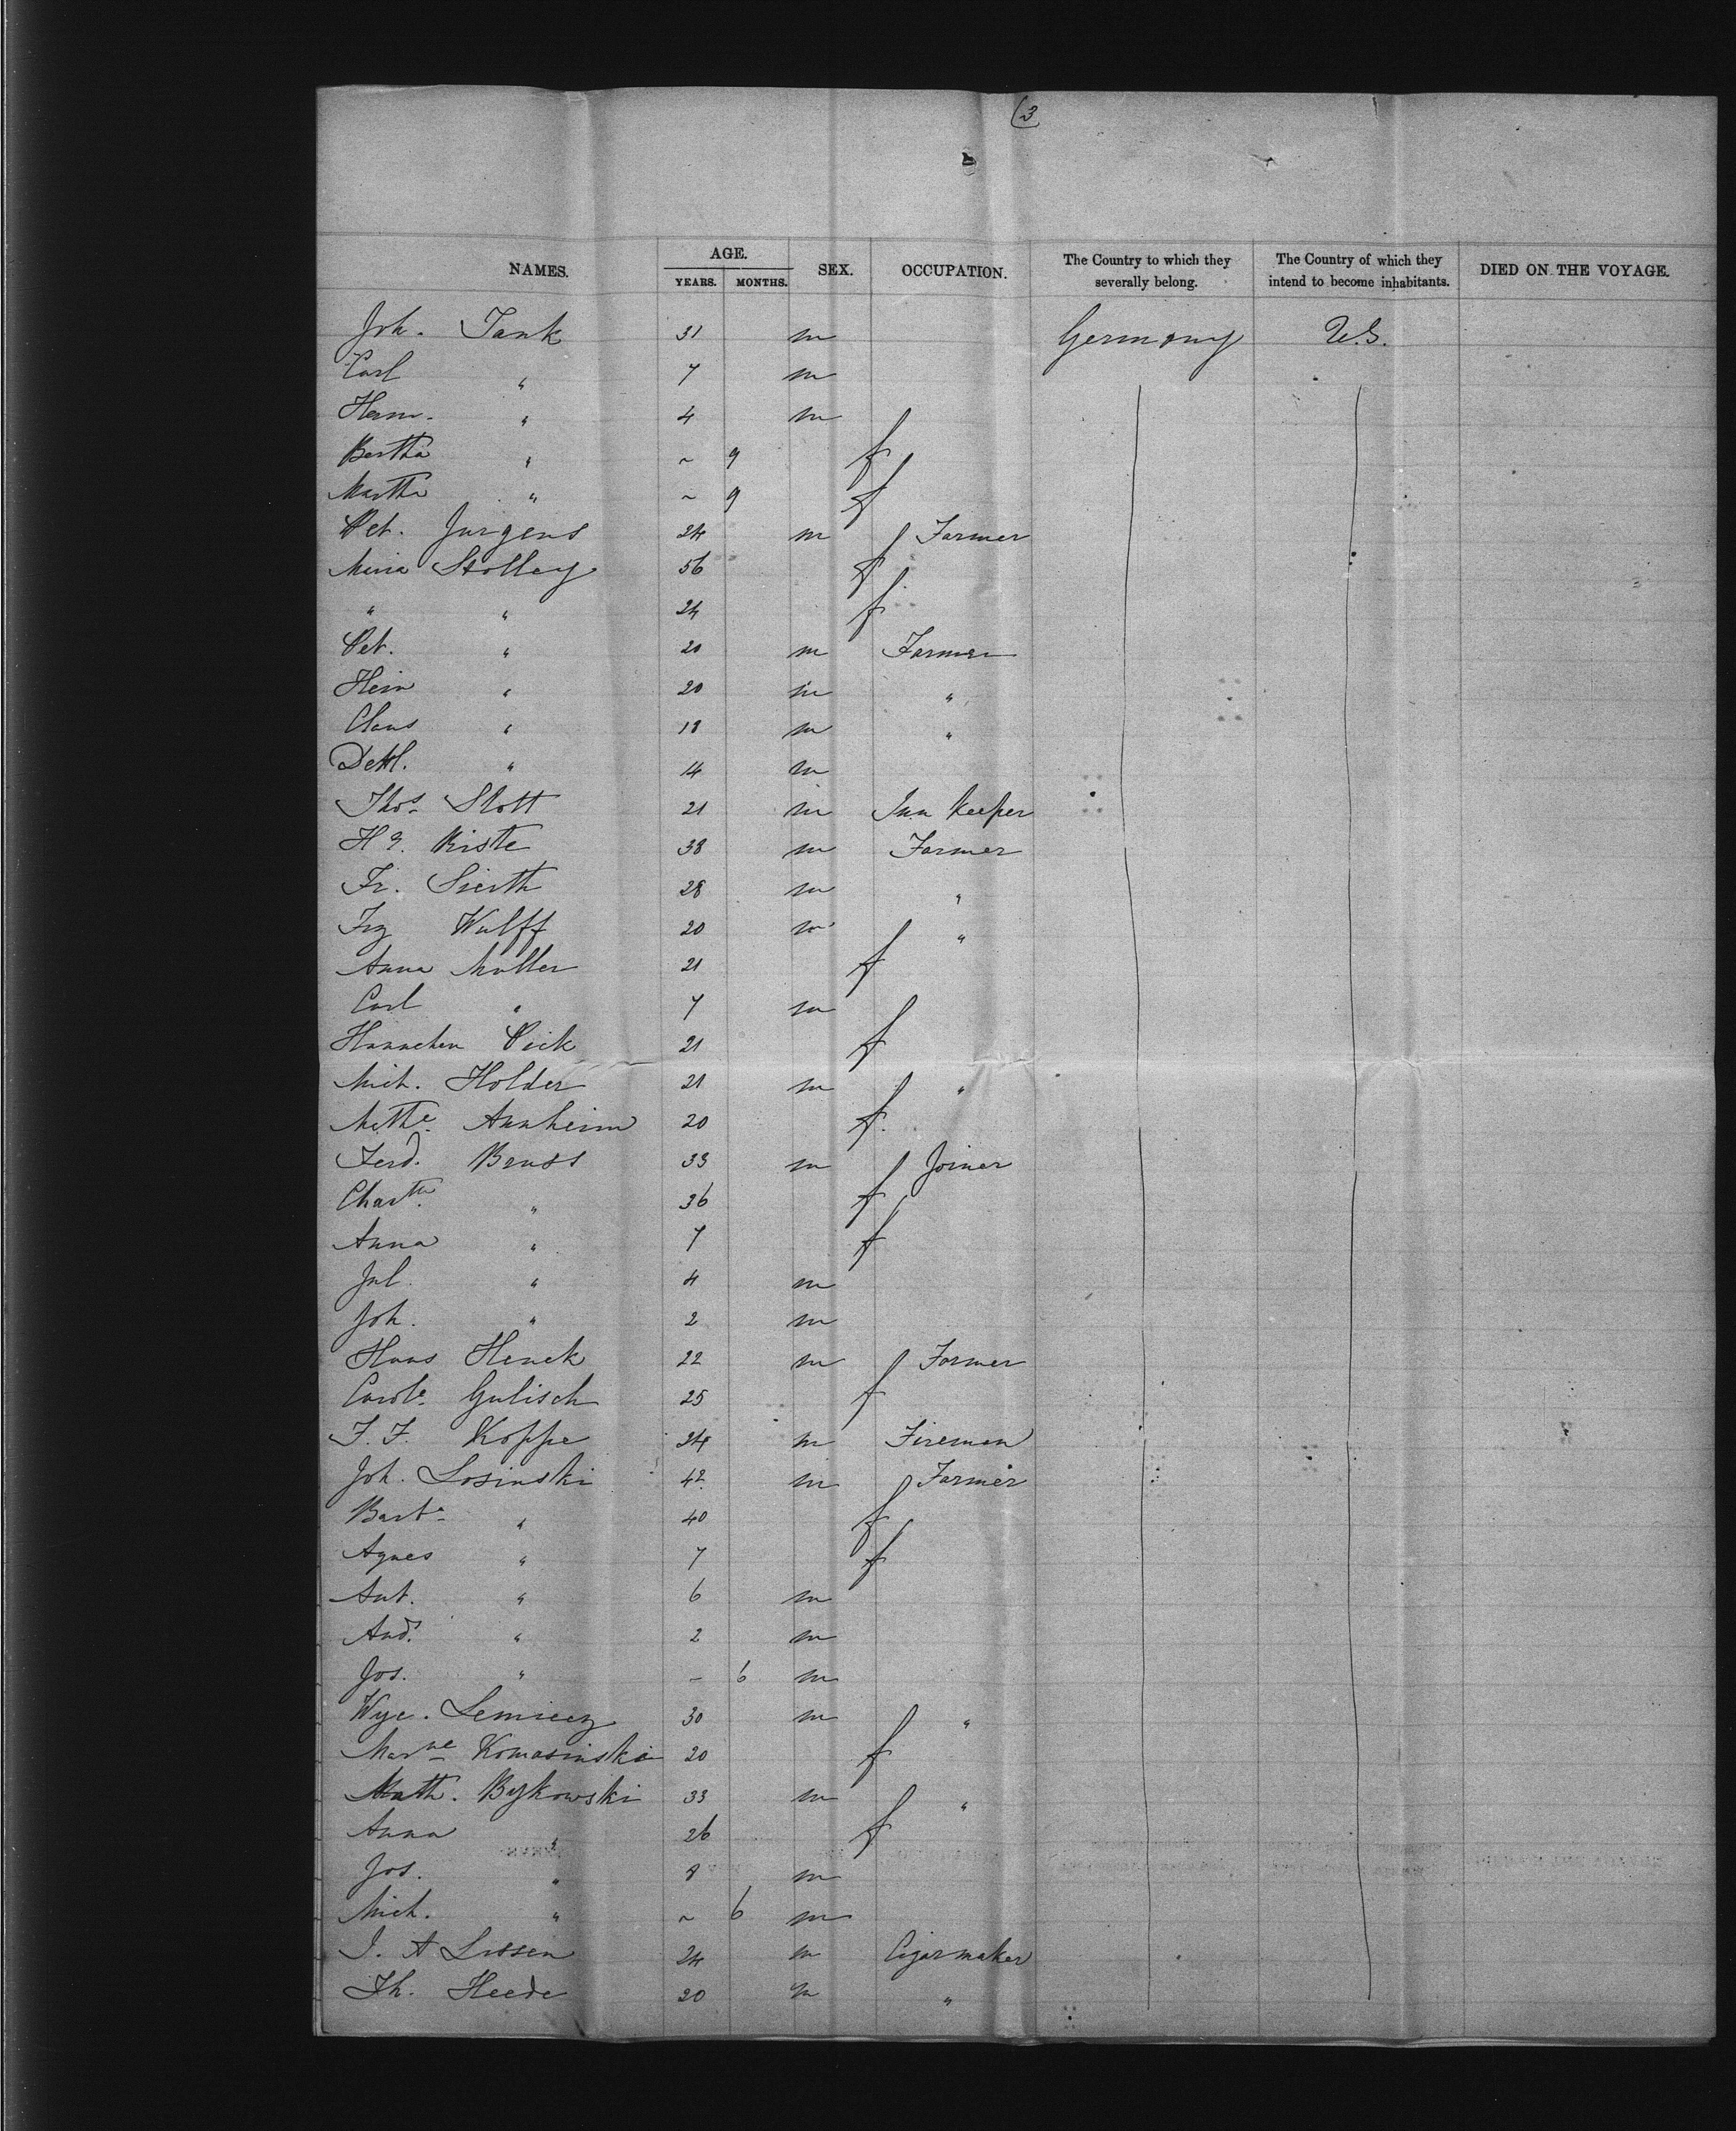 (3
NAMES. AGE. SEX. OCCUPATION. The Country to which they severally belong. The Country of which they intend to become inhabitants. DIED ON THE VOYAGE.
YEARS. MONTHS.
Joh. Tank 31 m Germany U.S.
Carl " 7 m
Herm. " 4 m
Bertha " ~ 9 f
Martha " ~ 9 f
Pet. Jurgens 24 m Farmer
Maria Stolley 56 f
" " 24 f
Pet. " 20 m Farmer
Hein " 20 m "
Claus " 18 m "
Detl. " 14 m
Thos. Stott 21 m Inn Keeper
H Riste 38 m Farmer
Fr. Sierth 28 m "
Frz Wulff 20 m "
Anna Moller 21 f
Carl " 7 m
Hannchen Pick 21 f
Mich. Holder 21 m "
Mathe. Annheim 20 f
Ferd. Bruss 33 m Joiner
Chartte. " 36 f
Anna " 7 f
Jul. " 4 m
Joh. " 2 m
Hans Henck 22 m Farmer
Carole. Gulisch 25 f
F. F. Koppe 24 m Fireman
Joh. Losinski 42 m Farmer
Barba. " 40 f
Agnes " 7 f
Ant. " 6 m
And. " 2 m
Jos. " - 6 m
Wyc. Lemiecz 30 m "
Marne Komosinski 20 f
Math. Bykowski 33 m "
Anna " 26 f
Jos. " 8 m
Mich. " ~ 6 m
J. A Lossen 24 m Cigarmaker
Th. Heede 20 m "